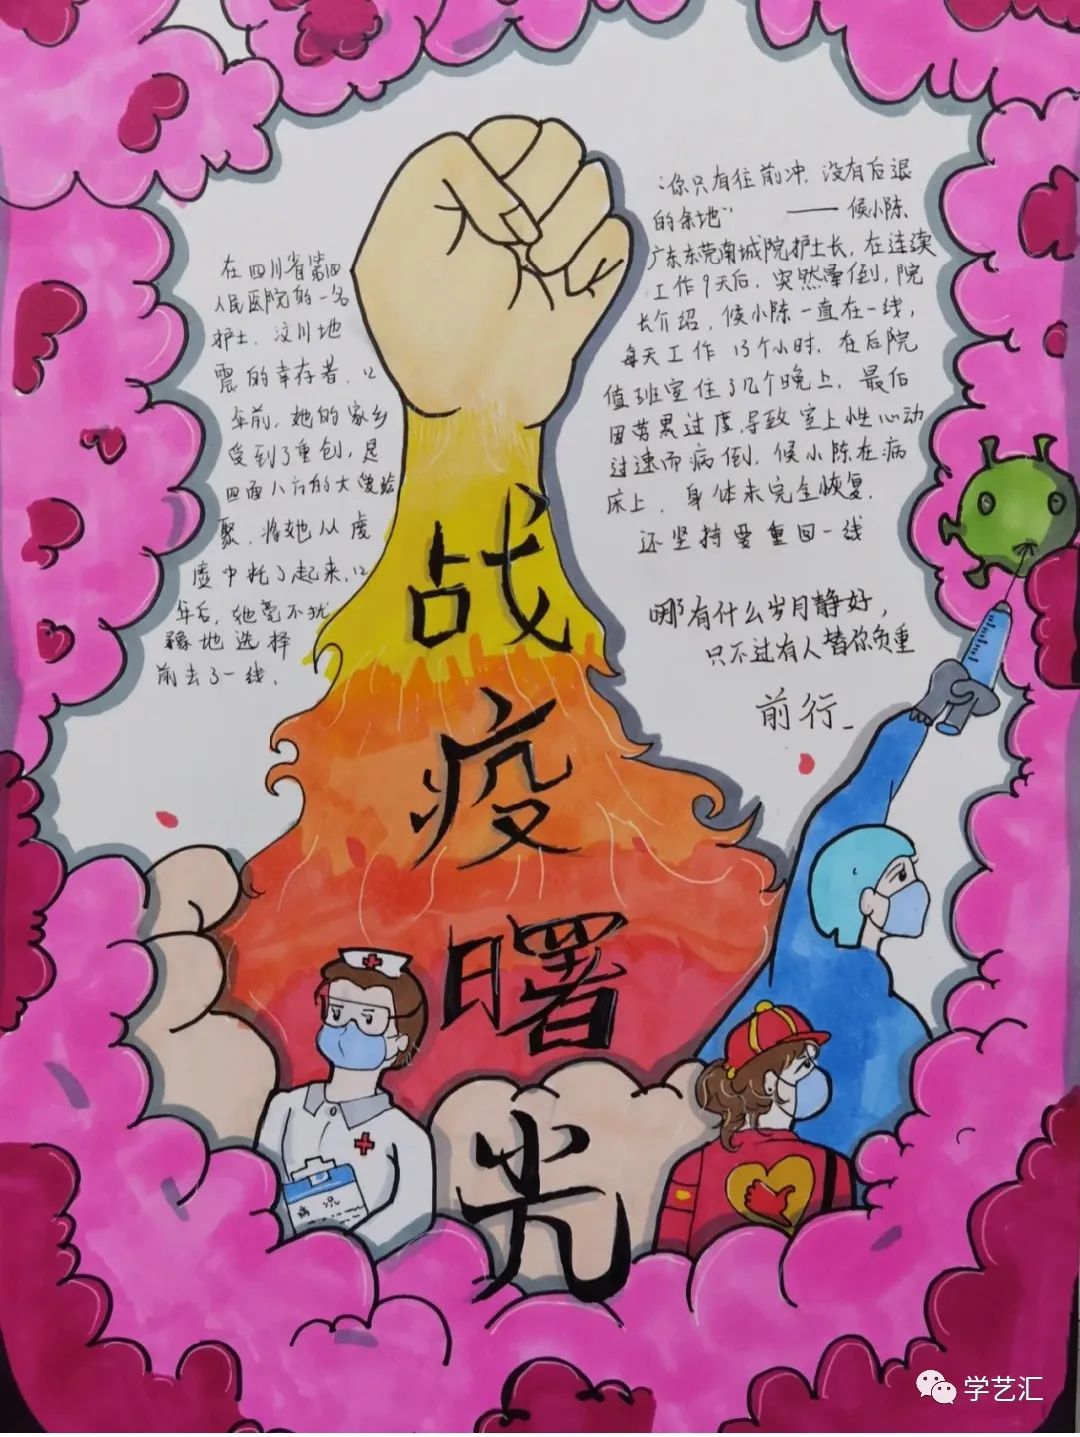 战
疫
曙
光
在四川省第四
人民医院的一名
护士，汶川地
震的幸存者，12
年前，她的家乡
受到了重创，是
四面八方的大爱
聚，将她从废
虚中托了起来，12
年后，她毫不犹
豫地选择
前去了一线，
“你只有往前冲，没有后退
的余地”——候小陈
广东东莞南城院护士长，在连续
工作9天后，突然晕倒，院
长介绍，候小陈一直在一线，
每天工作13个小时，在后院
值班室住了几个晚上，最后
因劳累过度，导致室上性心动
过速而病倒，候小陈在病
床上，身体未完全恢复，
还坚持要重回一线
哪有什么岁月静好，
只不过有人替你负重
前行_
病况
学艺汇